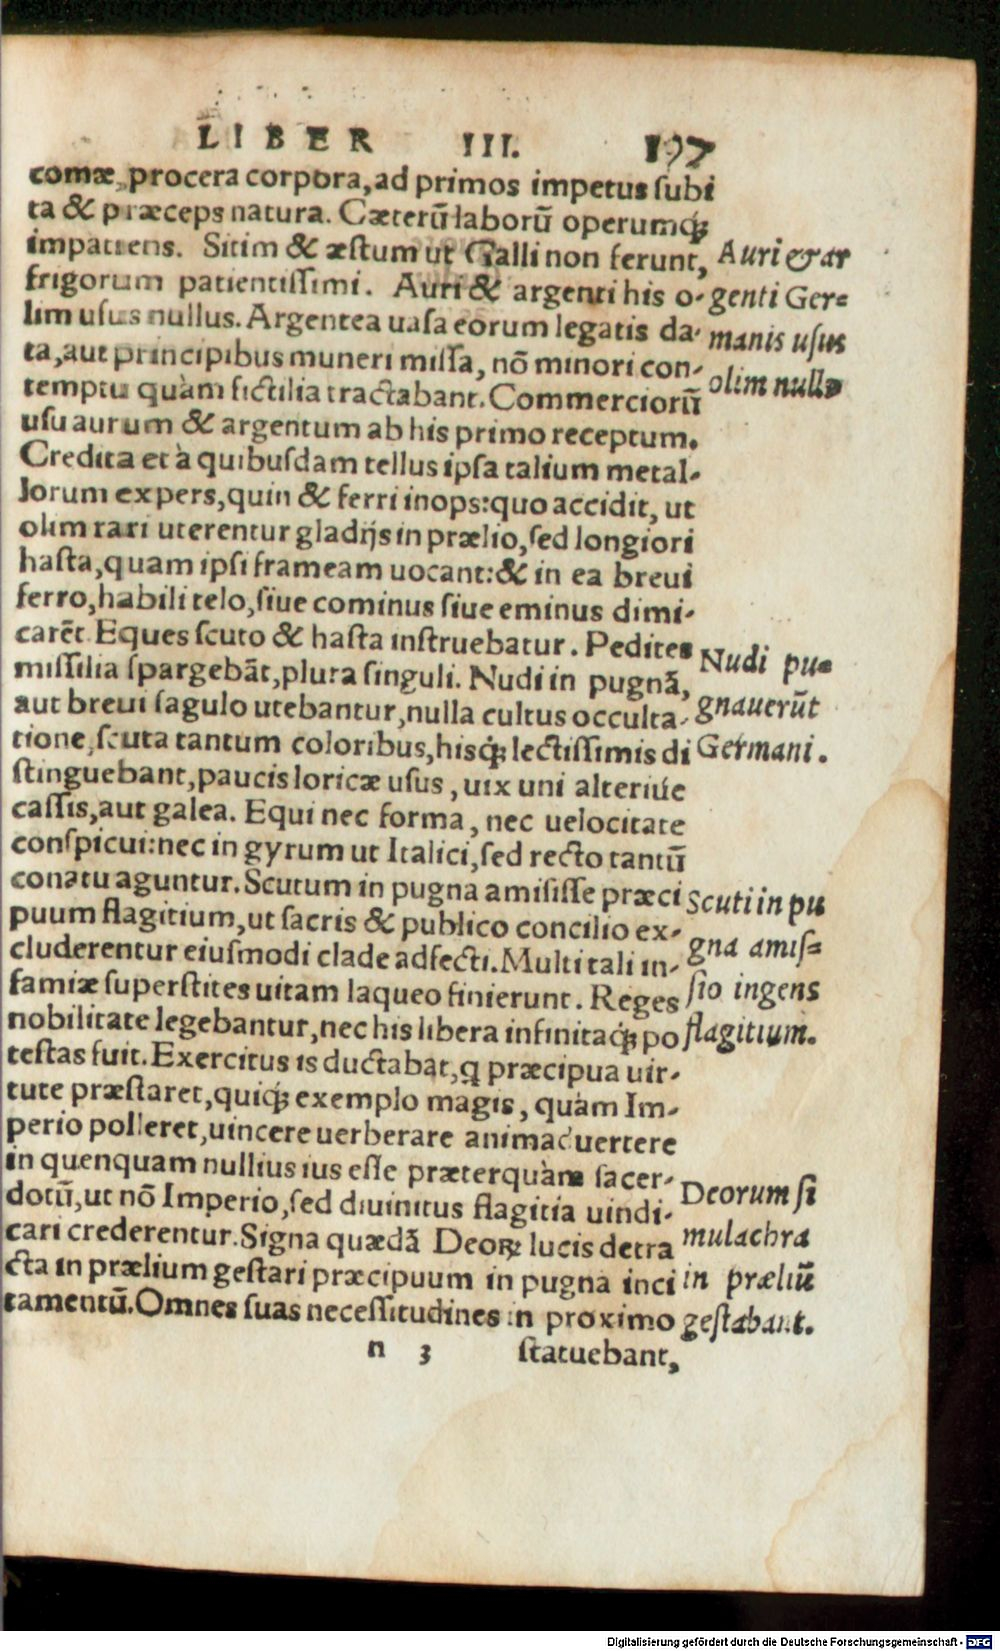 LIBER III. 197
comæ, procera corpora, ad primos impetus subi
ta & præceps natura. Cæterũ laborũ operumq́;
impatiens. Sitim & æstum ut Galli non ferunt,
frigorum patientissimi. Auri & argenti his o-
lim usus nullus. Argentea uasa eorum legatis da-
ta, aut principibus muneri missa, nõ minori con-
temptu quàm fictilia tractabant. Commerciorũ
usu aurum & argentum ab his primo receptum.
Credita et à quibusdam tellus ipsa talium metal-
lorum expers, quin & ferri inops: quo accidit, ut
olim rari uterentur gladijs in prælio, sed longiori
hasta, quam ipsi frameam uocant: & in ea breui
ferro, habili telo, siue cominus siue eminus dimi-
carẽt. Eques scuto & hasta instruebatur. Pedites
missilia spargebãt, plura singuli. Nudi in pugnã,
aut breui sagulo utebantur, nulla cultus occulta-
tione, scuta tantum coloribus, hisq́; lectissimis di
stinguebant, paucis loricæ usus, uix uni alteriúe
cassis, aut galea. Equi nec forma, nec uelocitate
conspicui: nec in gyrum ut Italici, sed recto tantũ
conatu aguntur. Scutum in pugna amisisse præci
puum flagitium, ut sacris & publico concilio ex-
cluderentur eiusmodi clade adfecti. Multi tali in-
famiæ superstites uitam laqueo finierunt. Reges
nobilitate legebantur, nec his libera infinitaq́; po
testas fuit. Exercitus is ductabat, q præcipua uir-
tute præstaret, quiq́; exemplo magis, quàm Im-
perio polleret, uincere uerberare animaduertere
in quenquam nullius ius esse præterquàm sacer-
dotũ, ut nõ Imperio, sed diuinitus flagitia uindi-
cari crederentur. Signa quædã Deoꝝ lucis detra
cta in prælium gestari præcipuum in pugna inci
tamentũ. Omnes suas necessitudines in proximo
n 3 statuebant,
Auri & ar
genti Ger=
manis usus
olim nullꝰ
Nudi pu=
gnauerũt
Germani.
Scuti in pu
gna amis=
sio ingens
flagitium.
Deorum si
mulachra
in præliũ
gestabant.
Digitalisierung gefördert durch die Deutsche Forschungsgemeinschaft - DFG